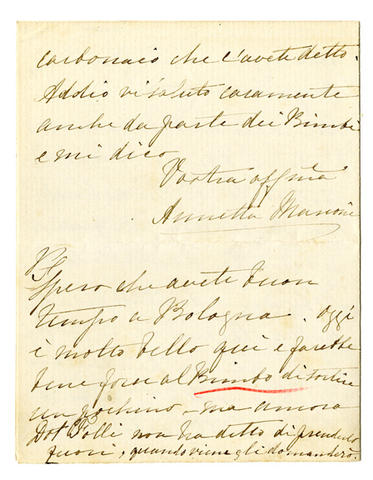 carbonaio che l'avete detto.
Addio vi saluto caramente
anche da parte dei Bimbi
e mi dico
Vostra affma
Annetta
PS
Spero che avete buon
tempo a Bologna. Oggi
è molto bello qui e farebbe
bene forse al Bimbo di sortire
un pochino – ma ancora
Dot Polli non ha detto di prenderlo
fuori, quando viene gli domanderò.